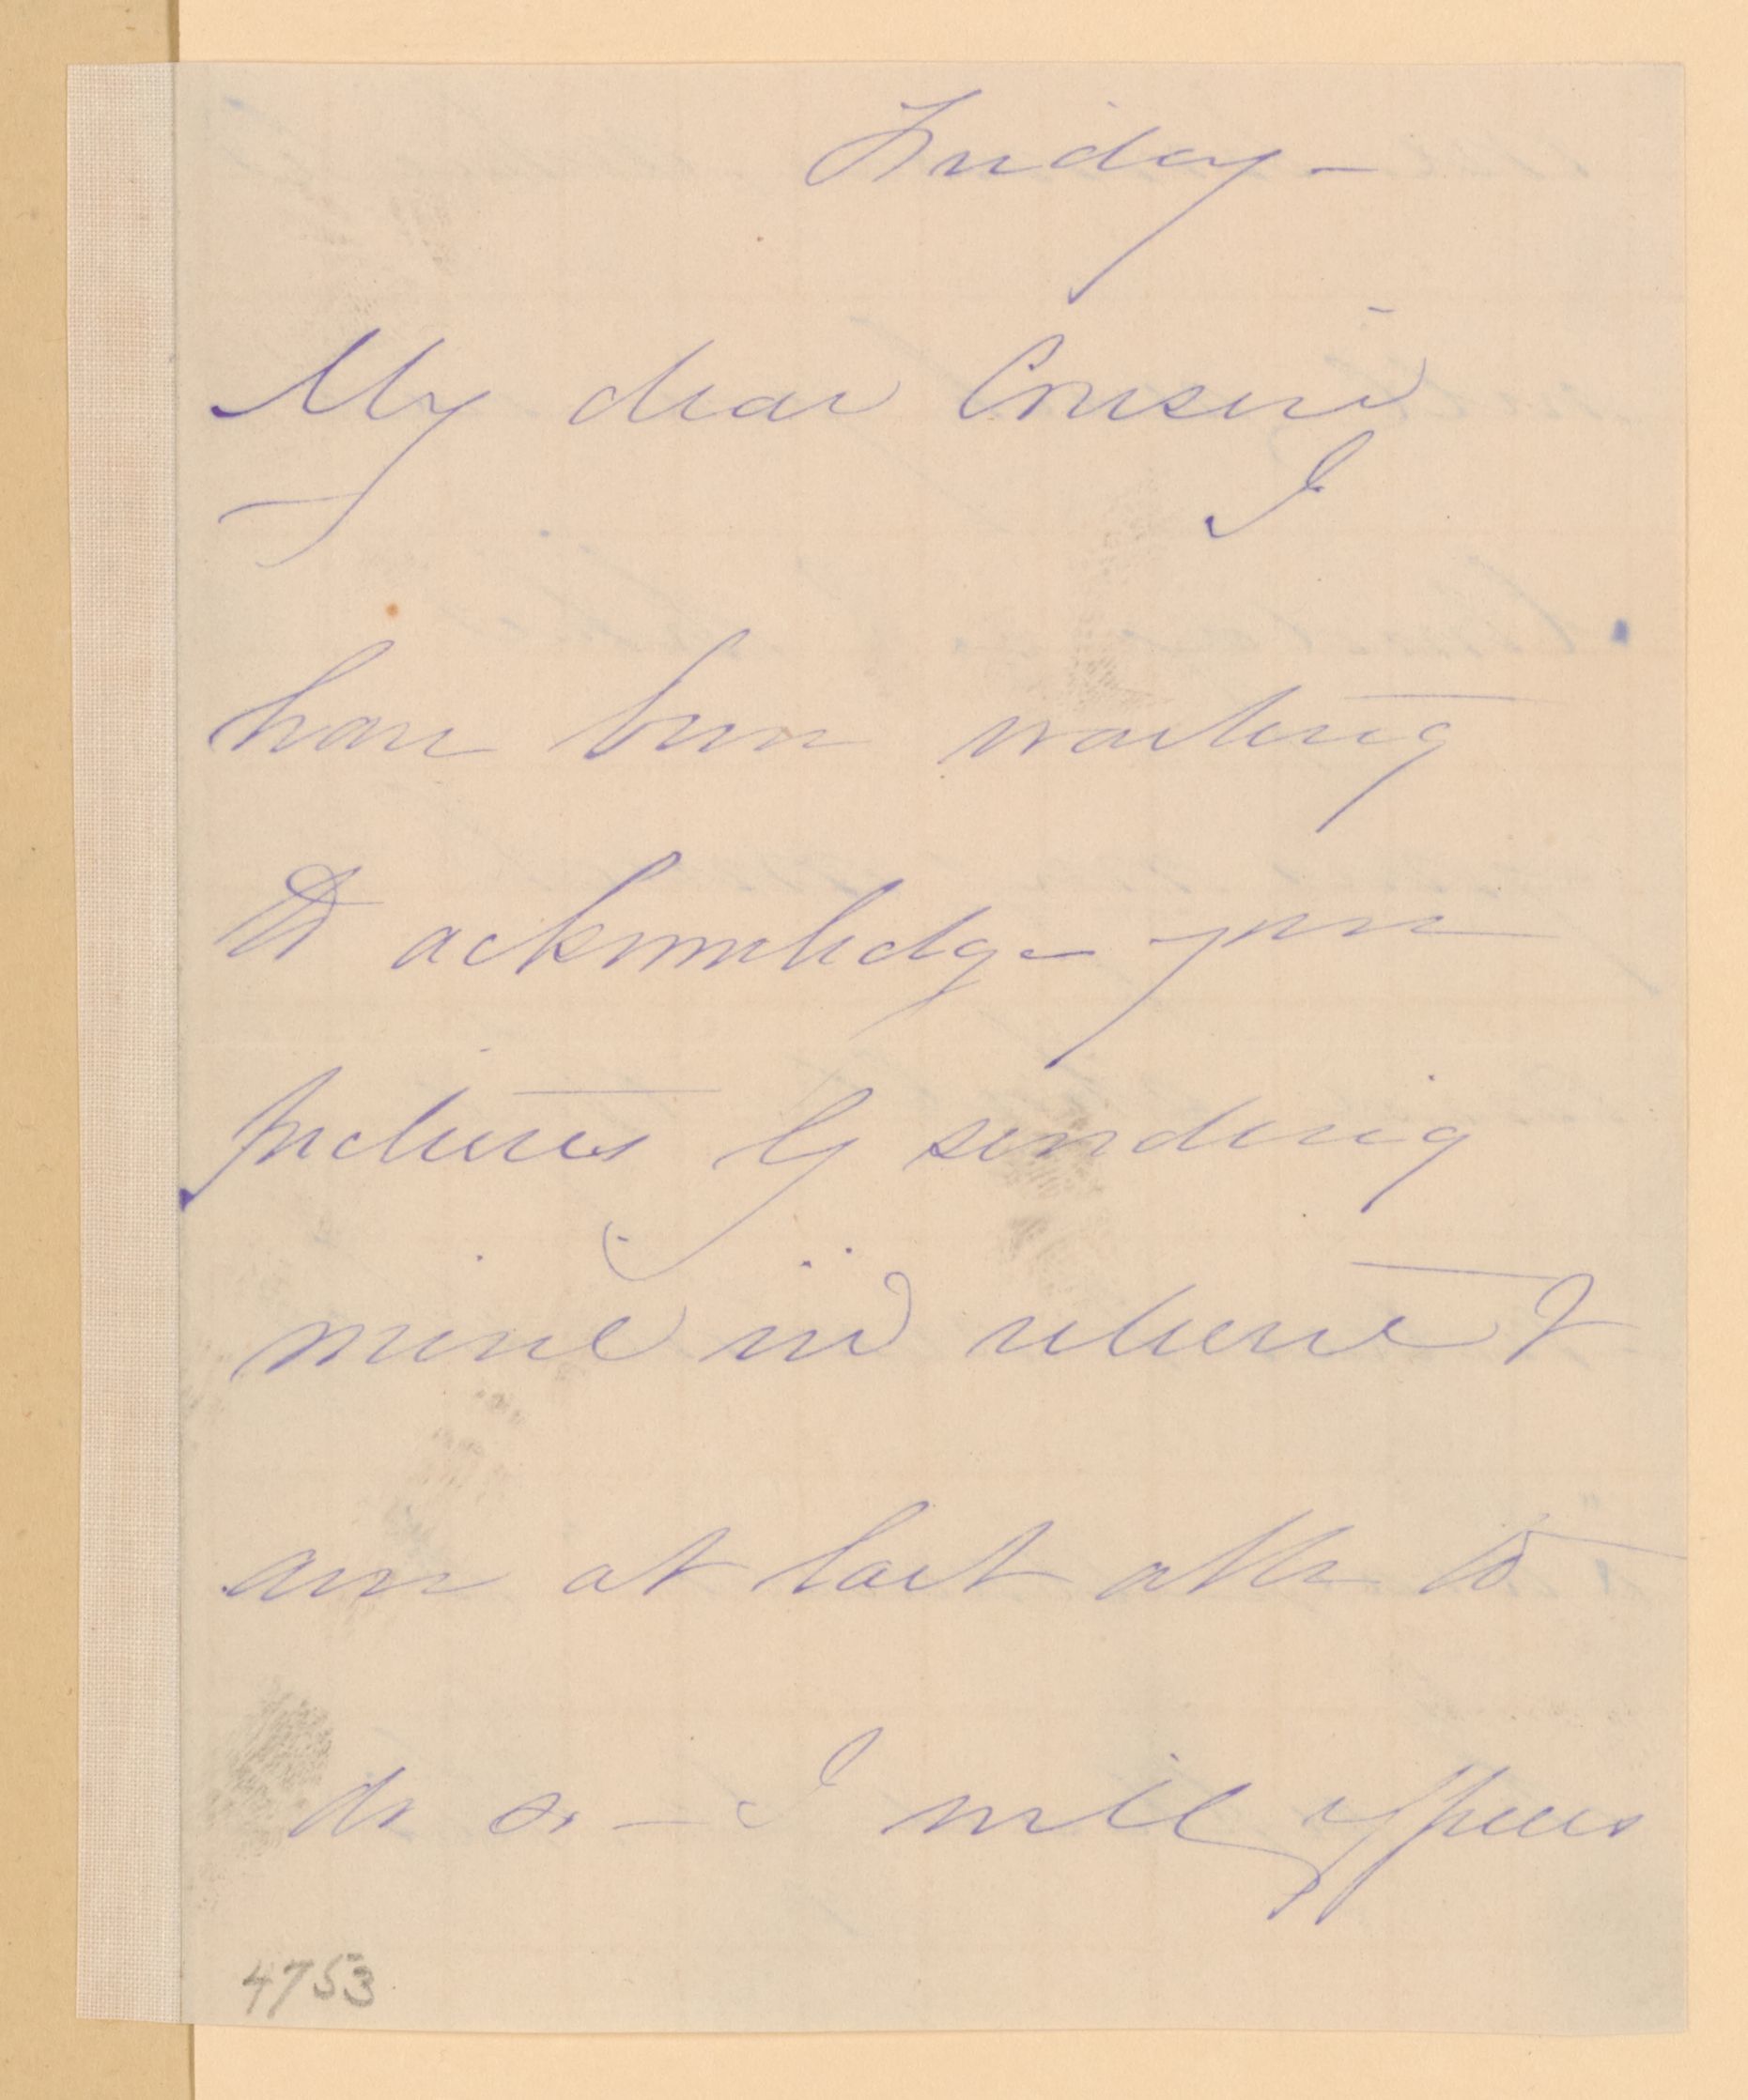 Friday -
My dear Cousin
I
have been waiting
to acknowledge your
pictures by sending
mine in return &
am at last able to
do so - I will
4753